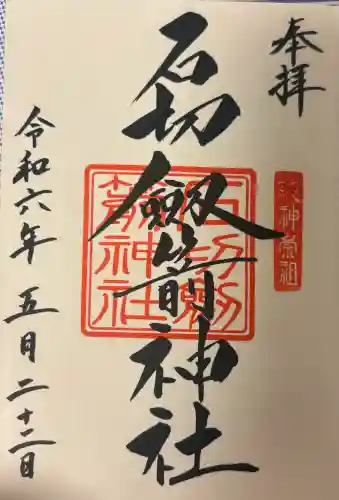 奉拝
石切劔箭神社
石切劔箭神社
令和六年 五月二十二日